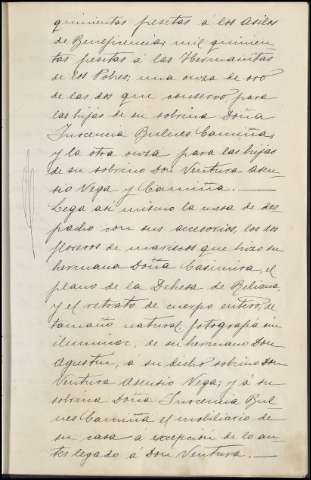 quinientas pesetas á los Asilos
de Beneficencia; mil quinien-
tas pesetas á las Hermanitas
de los Pobres; una onza de oro
de las dos que conservo para
las hijas de su sobrina Doña
Inocencia Bulnes Camiña,
y la otra onza para las hijas
de su sobrino Don Ventura Asen-
sio Vega y Camiña.
Lega asi mismo la mesa de des-
pacho con sus accesorios, los dos
floreros de mariscos que hizo su
hermana Doña Casimira, el
plano de la Dehesa de
y el retrato de cuerpo entero, de
tamaño natural, fotografia sin
iluminar, de su hermano Don
Agustin, a su dicho sobrino Don
Ventura Asensio Vega; y á su
sobrina Doña Inocencia Bul-
nes Camiña el mobiliario de
su casa á excepción de lo an-
tes legado á Don Ventura.